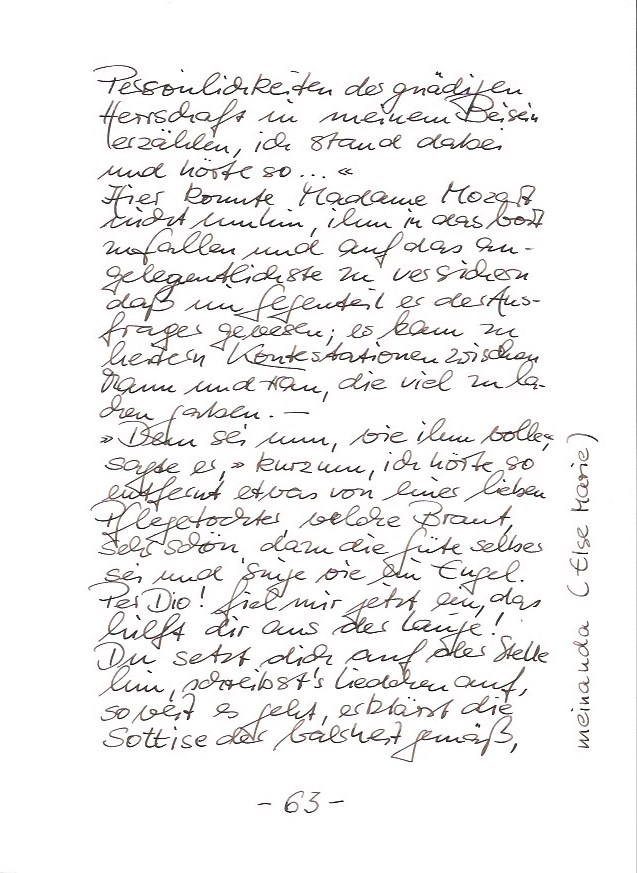 Persönlichkeiten der gnädigen
Herrschaft in meinem Beisein
erzählen, ich stand dabei
und hörte so ... «
Hier konnte Madame Mozart
nicht umhin, ihm in das Wort
zu fallen und auf das an-
gelegentlichste zu versichern
daß im Gegenteil er der Aus-
frager gewesen; es kam zu
heitern Kontestationen zwischen
Mann und Frau, die viel zu la-
chen gaben. —
» Dem sei nun, wie ihm wolle,
sagte er, » kurzum, ich hörte so
entfernt etwas von einer lieben
Pflegetochter, welche Braut,
sehr schön, dazu die Güte selber
sei und singe wie ein Engel.
Per Dio! fiel mir jetzt ein, das
hilft dir aus der Lauge!
Du setzt dich auf der Stelle
hin, schreibst's Liedchen auf,
so weit es geht, erklärst die
Sottise der Wahrheit gemäß,
- 63 -
meinanda (Else Marie)